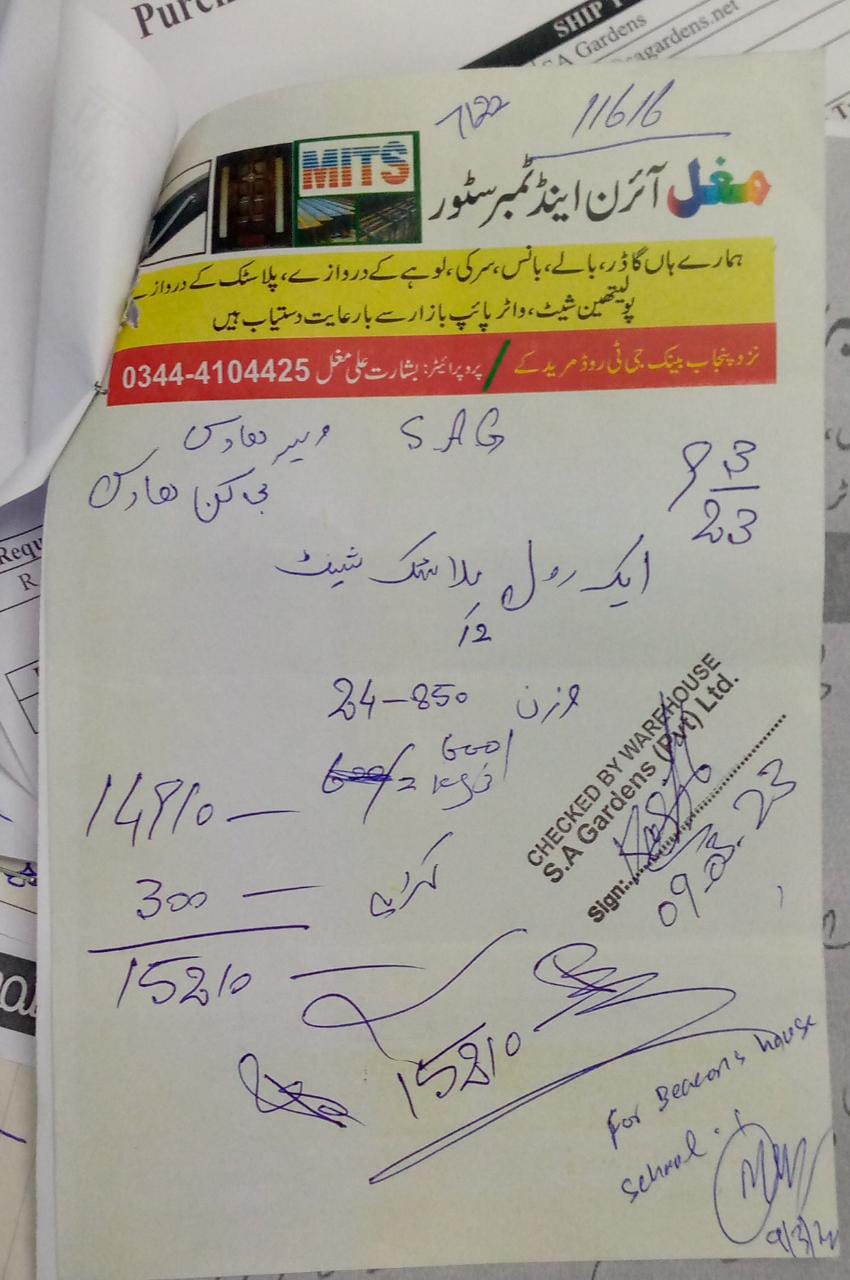 Purch
SHIP T
S.A Gardens
sagardens.net
7122 11616
MITS
مغل آئرن اینڈ ٹمبر سٹور
ہمارے ہاں گاڈر، بالے، بانس، سرکی، لوہے کے دروازے، پلاسٹک کے دروازے
پولیتھین شیٹ، واٹر پائپ بازار سے بارعایت دستیاب ہیں
نزد پنجاب بینک جی ٹی روڈ مریدکے / پروپرائیٹر: بشارت علی مغل 0344-4104425
SAG ویئر ھاوس
ھاوس
9 3
23
ایک رول پلاسٹک شیٹ
12
وزن 24-850
600/
kgs
14910 —
کرایہ — 300
15210 —
15210
CHECKED BY WAREHOUSE
S.A Gardens (Pvt) Ltd.
Sign:
09.03.23
For Beacons house
School.
9/3/2
Requ
R